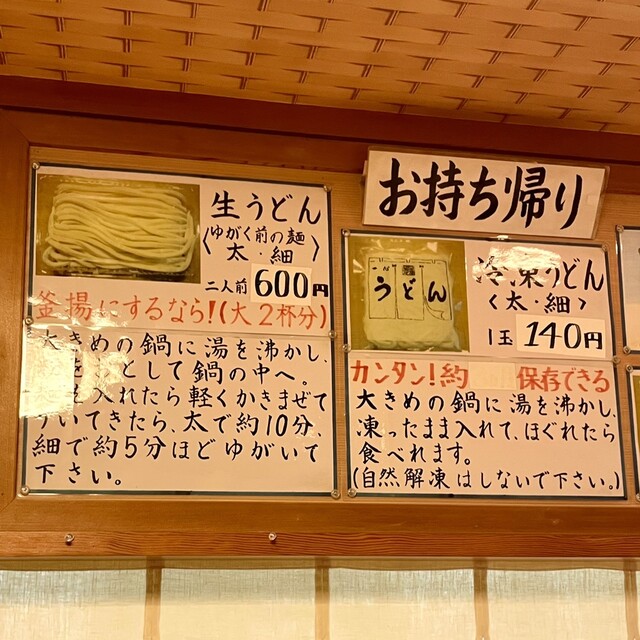 お持ち帰り
生うどん
〈ゆがく前の麺〉
太・細
二人前 600円
釜揚にするなら!(大2杯分)
大きめの鍋に湯を沸かし、
として鍋の中へ。
入れたら軽くかきまぜて
ういてきたら、太で約10分、
細で約5分ほどゆがいて
下さい。
うどん
冷凍うどん
〈太・細〉
1玉 140円
カンタン!約 保存できる
大きめの鍋に湯を沸かし、
凍ったまま入れて、ほぐれたら
食べれます。
(自然解凍はしないで下さい。)